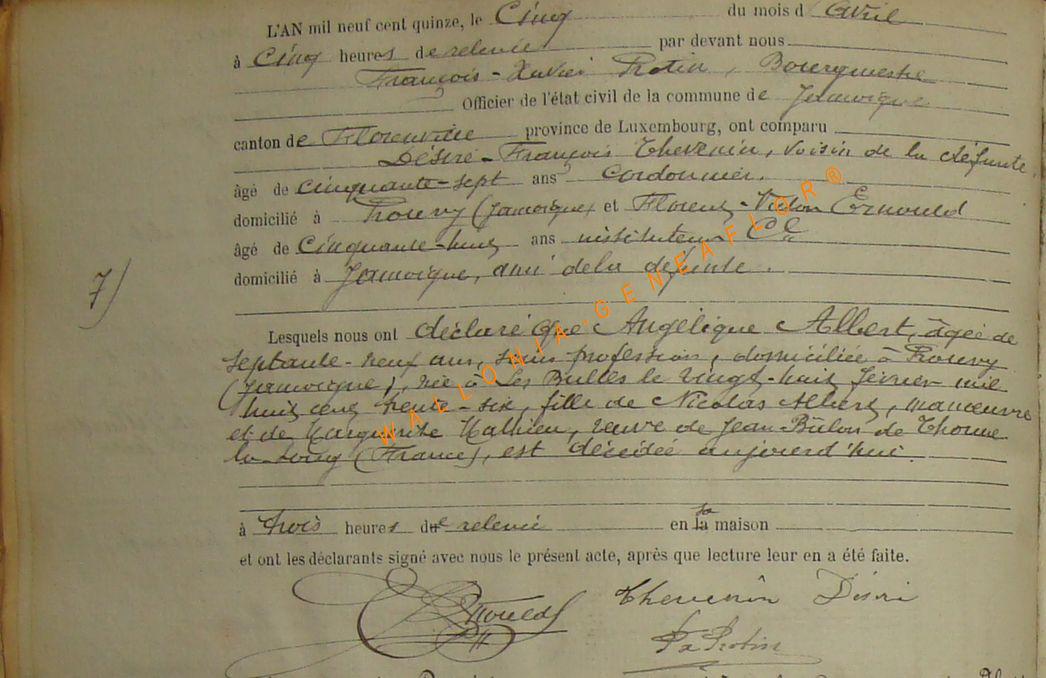 L'AN mil neuf cent quinze, le Cinq du mois d'Avril
à Cinq heures de relevée par devant nous
François-Xavier Protin, Bourgmestre
Officier de l'état civil de la commune de Jamoigne
canton de Florenville province de Luxembourg, ont comparu
Désiré-François Thevenin, voisin de la défunte,
âgé de cinquante-sept ans cordonnier,
domicilié à Prouvy (Jamoigne) et Florent- Ernould
âgé de Cinquante-huit ans instituteur
domicilié à Jamoigne, ami de la défunte.
7)
Lesquels nous ont déclaré que Angélique Albert, âgée de
septante-neuf ans, sans profession, domiciliée à Prouvy
(Jamoigne), née à Les Bulles le vingt-huit février mil
huit cent trente-six, fille de Nicolas Albert, manœuvre
et de Marguerite Mathieu, veuve de Jean Bulon de Thonne
la Long (France), est décédée aujourd'hui
à trois heures de relevée en sa maison
et ont les déclarants signé avec nous le présent acte, après que lecture leur en a été faite.
Ernould Thevenin Désiré
Fx Protin
WALLONIA-GENEAFLOR®